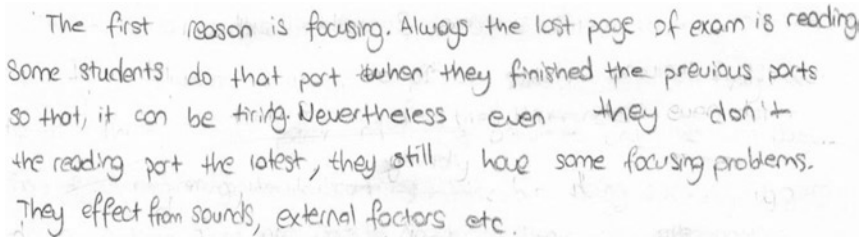 The first reason is focusing. Always the last page of exam is reading.
Some students do that part when they finished the previous parts
so that, it can be tiring. Nevertheless even they don't
the reading part the latest, they still have some focusing problems.
They effect from sounds, external factors etc.